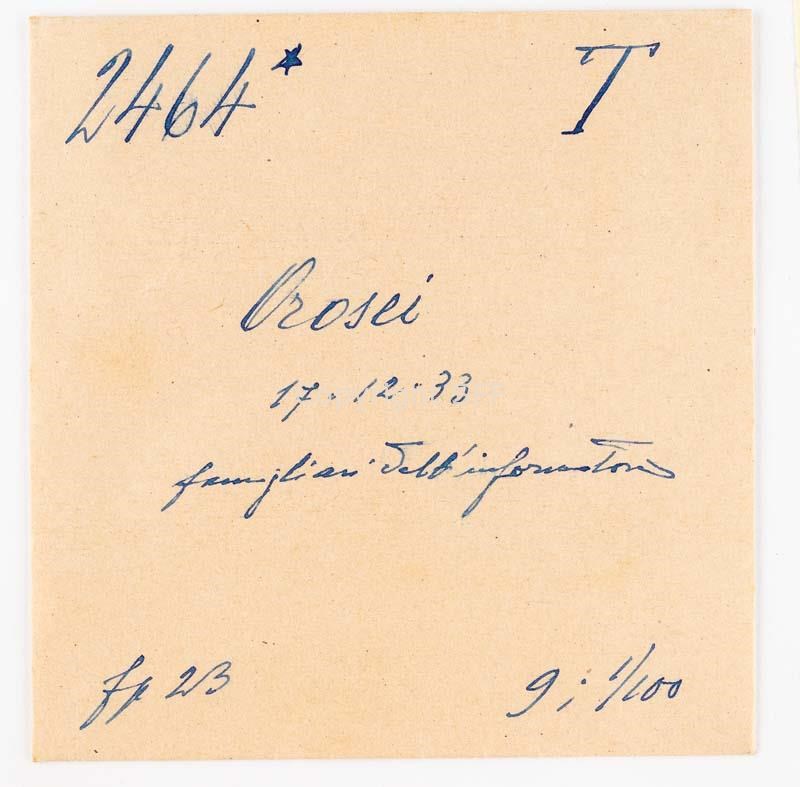 2464* T
Orosei
17.12.33
famigliari dell'informatore
fp 23
9; 1/100